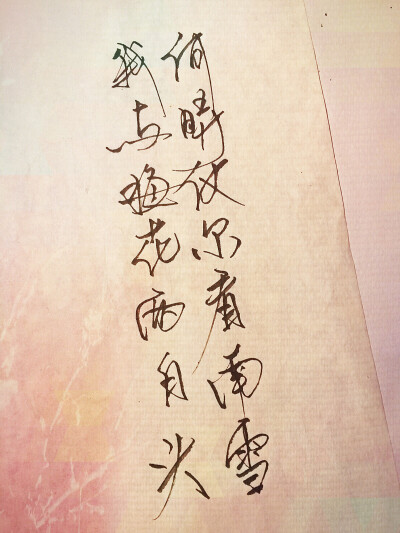 何時仗尔看南雪
我与梅花两白头